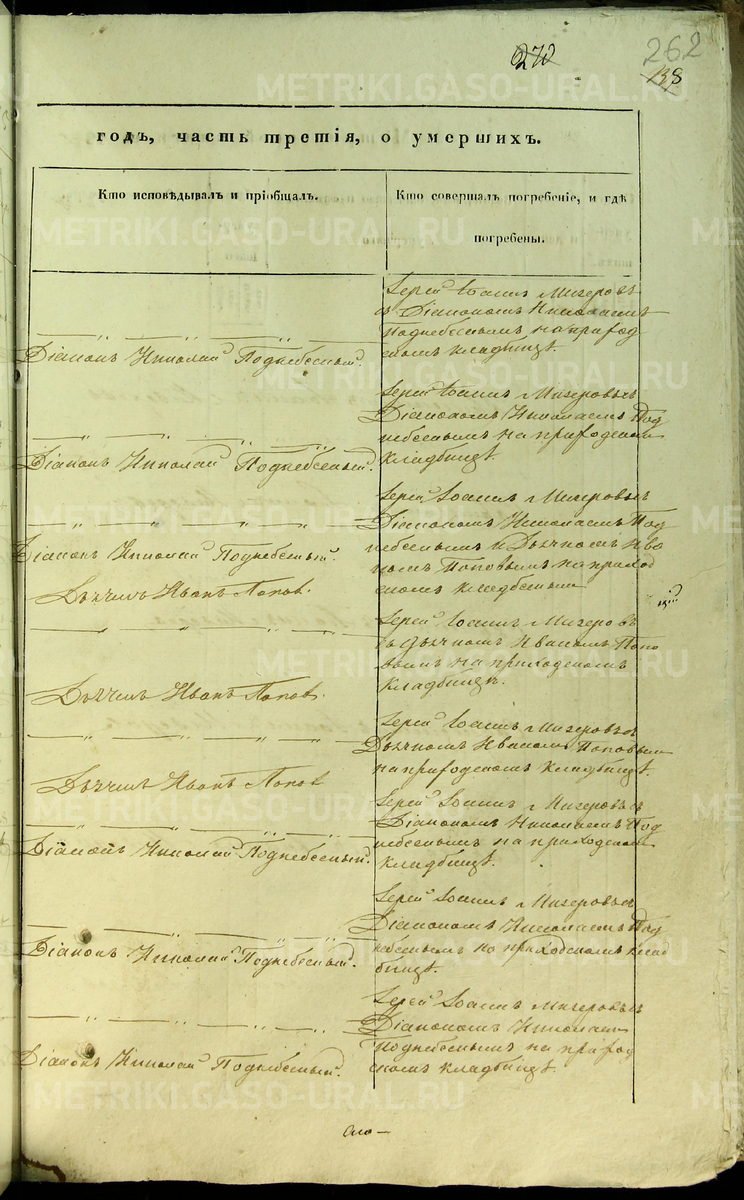 262
270
138
годъ, часть третія, о умершихъ.
Кто исповѣдывалъ и пріобщалъ.
Кто совершалъ погребеніе, и гдѣ
погребены.
Іерей Іоаннъ Мизеровъ
съ Діакономъ Николаемъ
Поднебеснымъ на приход
скомъ кладбищѣ.
Діаконъ Николай Поднебесный.
Іерей Іоаннъ Мизеровъ съ
Діакономъ Николаемъ Под
небеснымъ на приходском
кладбищѣ.
Діаконъ Николай Поднебесный.
Іерей Іоаннъ Мизеровъ съ
Діакономъ Николаемъ Под
небеснымъ и Дьячкомъ Ива
номъ Поповымъ на приход
скомъ
Діаконъ Николай Поднебесный.
Дьячекъ Иванъ Попов.
Іерей Іоаннъ Мизеровъ
съ Дьячкомъ Иваномъ Попо
вымъ на приходскомъ
кладбищѣ.
Дьячекъ Иванъ Попов.
Іерей Іоаннъ Мизеровъ съ
Дьячкомъ Иваномъ Поповым
на приходскомъ кладбищѣ.
Дьячекъ Иванъ Попов
Іерей Іоаннъ Мизеровъ съ
Діакономъ Николаемъ Под
небеснымъ на приходском
кладбищѣ.
Діаконъ Николай Поднебесный.
Іерей Іоаннъ Мизеровъ съ
Діакономъ Николаемъ Под
небеснымъ на приходскомъ клад
бищѣ.
Діаконъ Николай Поднебесный.
Іерей Іоаннъ Мизеровъ съ
Діакономъ Николаем
Поднебеснымъ на приход
скомъ кладбищѣ.
Діаконъ Николай Поднебесный.
METRIKI.GASO-URAL.RU